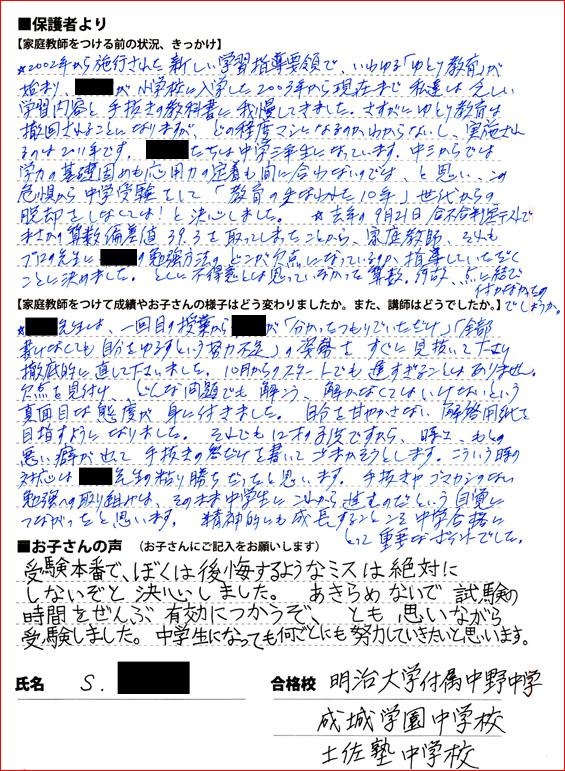 ■保護者より
【家庭教師をつける前の状況、きっかけ】
★2002年から施行された新しい学習指導要領で、いわゆる「ゆとり教育」が
始まり、 が小学校に入学した2003年から現在まで私達は乏しい
学習内容と手抜きの教科書に我慢してきました。さすがにゆとり教育は
撤回されることになりますが、どの程度マシになるのかわからないし、実施され
るのは2011年です。 たちは中学三年生になっています。中三からでは
学力の基礎固めも応用力の定着も間に合わないのでは、と思い、この
危惧から中学受験をして「教育の失なわれた10年」世代からの
脱却をしなくては!と決心しました。 ★去年の9月21日合不合判定テストで
まさかの算数偏差値39.3を取ってしまったことから、家庭教師、それも
プロの先生に の勉強方法のどこが欠点になっているのか指導していただく
ことに決めました。とくに不得意とは思っていなかった算数、何故、点に結び
付かなかったの
でしょうか。
【家庭教師をつけて成績やお子さんの様子はどう変わりましたか。また、講師はどうでしたか。】
★ 先生は、一回目の授業から が「分かったつもりでいただけ」「全部
書けなくても自分をゆるすという努力不足」の姿勢をすぐに見抜いて下さり
徹底的に直して下さいました。10月からのスタートでも遅すぎることはありません。
欠点を見付け、どんな問題でも解こう、解かなくてはいけないという
真面目な態度が身に付きました。自分を甘やかさない解答用紙を
目指すようになりました。それでも12才の子供ですから、時々、もとの
悪い癖が出て手抜きの答だけを書いてごまかそうとします。こういう時の
対応は 先生の粘り勝ちだったと思います。手抜きやゴマカシのない
勉強への取り組みは、そのまま中学生にこれから進むのだという自覚に
つながったと思います。精神的にも成長することこそ中学合格に
とって重要なポイントでした。
■お子さんの声 （お子さんにご記入をお願いします）
受験本番で、ぼくは後悔するようなミスは絶対に
しないぞと決心しました。あきらめないで試験の
時間をぜんぶ有効につかうぞ、とも思いながら
受験しました。中学生になっても何ごとにも努力していきたいと思います。
氏名 S. 合格校 明治大学付属中野中学
成城学園中学校
土佐塾中学校